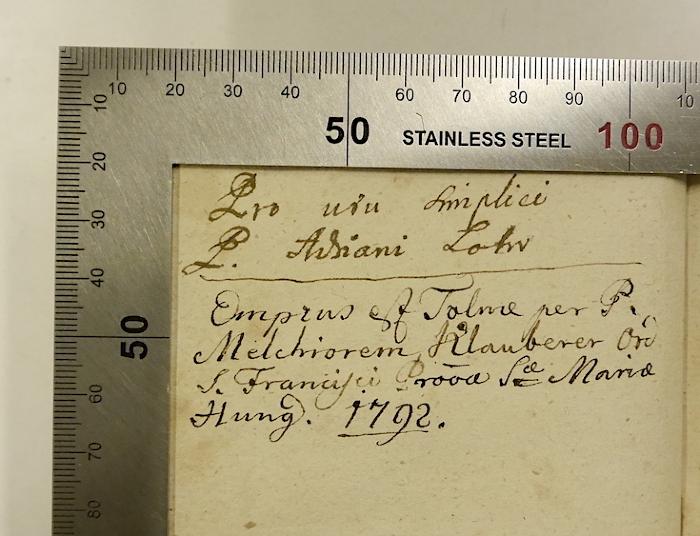 10 20 30 40 50 60 70 80 90 100 10
STAINLESS STEEL
10
20
30
40
50
60
70
80
Pro usu simplici
P. Adriani Lohr
Emptus est Tolnæ per P.
Melchiorem Klauberer Ord
S. Francisci Provæ Sæ Mariæ
Hung. 1792.